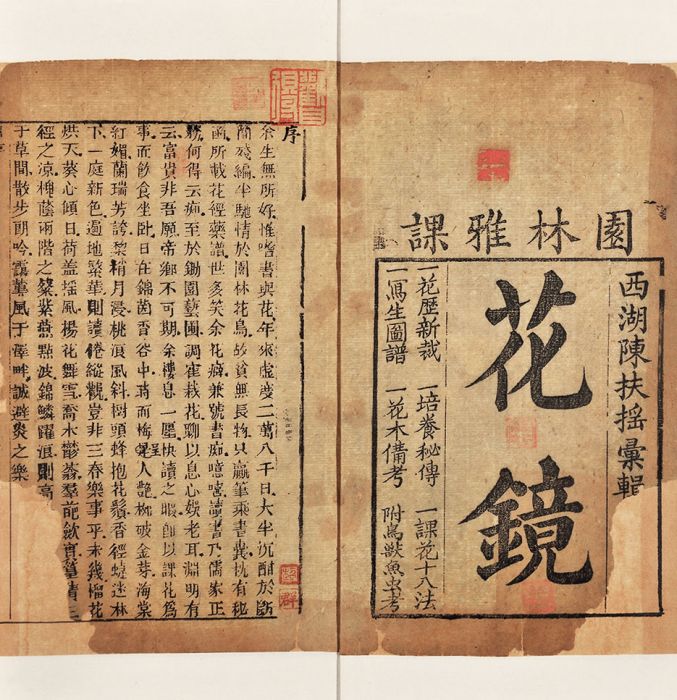 園林雅課
西湖陳扶搖彙輯
花鏡
一花歷新裁 一培養秘傳 一課花十八法
一寫生圖譜 一花木備考 附鳥獸魚虫考
序
余生無所好惟嗜書與花年來虛度二萬八千日大半沉酣於斷
簡殘編半馳情於園林花鳥故貧無長物只贏筆乘書囊枕有秘
函所載花經藥譜世多笑余花癖兼號書痴噫嘻讀書乃儒家正
務何得云痴至於鋤園藝圃調雀栽花聊以息心娛老耳淵明有
云富貴非吾願帝鄉不可期余棲息一廛快讀之暇卽以課花為
事而飲食坐臥日在錦茵香谷中時而梅呈人艷柳破金芽海棠
紅媚蘭瑞芳誇梨稍月浸桃浪風斜樹頭蜂抱花鬚香徑蝶迷林
下一庭新色遍地繁華則讀倦縱觀豈非三春樂事乎未幾榴花
烘天葵心傾日荷蓋搖風楊花舞雪喬木鬱蓊羣葩斂實篁清三
徑之凉槐蔭兩階之粲紫燕點波錦鱗躍浪則高
于草間散步朗吟霞蒸風于澤畔誠避炎之樂